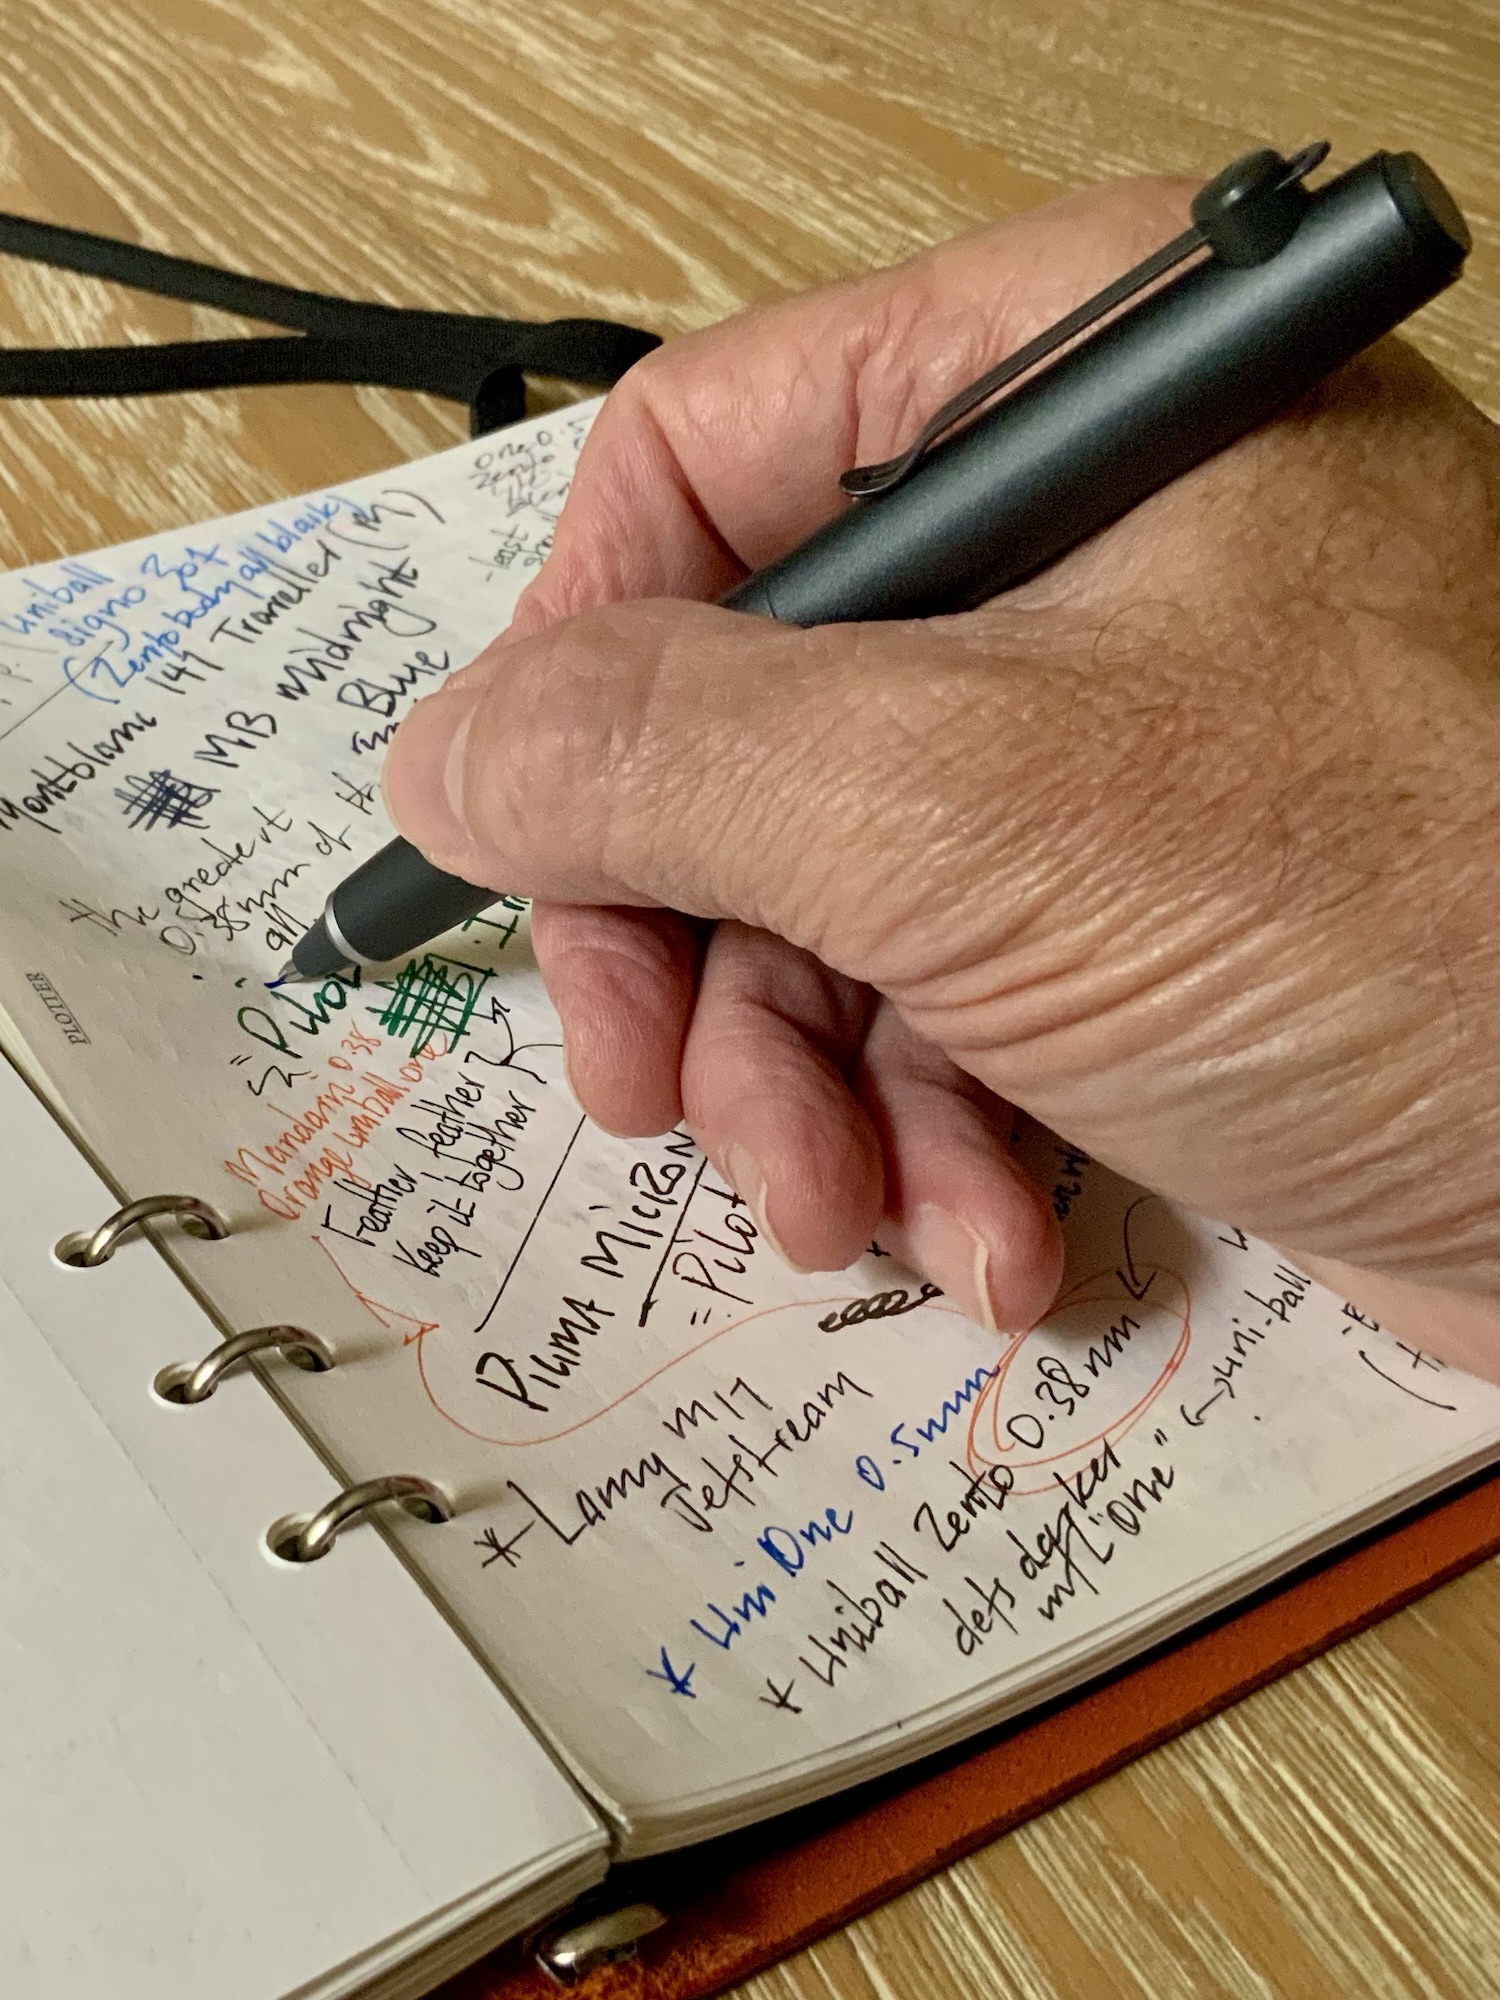 One 0.5
Zento
-least
uniball
Signo 307
(Zento body all black)
Montblanc 149 Traveller (M)
MB Midnight
Blue
the greatest
0.38mm of
all
PLOTTER
"Pilot
Mandarin 0.38
Orange uniball one
Feather feather
Keep it together
PIUMA MICRON
=Pilot
* Lamy M17
Jetstream
* Uni One 0.5mm
* Uniball Zento 0.38mm
dets darker
"One" uni-ball